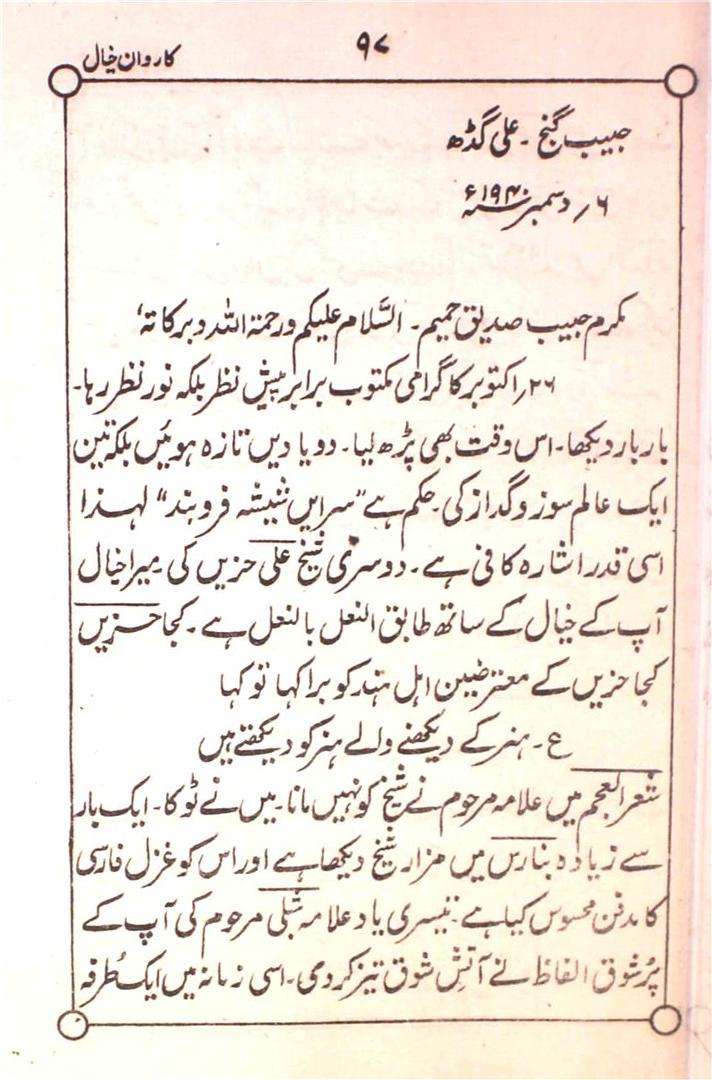 ۹۷
کاروان خیال
حبیب گنج ۔ علی گڈھ
۶؍ دسمبر ۱۹۴۰ء
مکرم حبیب صدیق حمیم ۔ السَّلام علیکم ورحمۃ اللہ وبرکاتہٗ
۲۶؍اکتوبر کا گرامی مکتوب برابر پیش نظر بلکہ نور نظر رہا۔
بار بار دیکھا۔ اس وقت بھی پڑھ لیا۔ دو یادیں تازہ ہوئیں بلکہ تین
ایک عالم سوز و گداز کی۔ حکم ہے "سر ایں شیشہ فروبند" لہذا
اسی قدر اشارہ کافی ہے۔ دوسری شیخ علی حزیں کی میرا خیال
آپ کے خیال کے ساتھ طابق النعل بالنعل ہے۔ کجا حزیں
کجا حزیں کے معترضین اہل ہند کو برا کہا تو کہا
ع ۔ ہنر کے دیکھنے والے ہنر کو دیکھتے ہیں
شعر العجم میں علامہ مرحوم نے شیخ کو نہیں مانا۔ میں نے ٹوکا۔ ایک بار
سے زیادہ بنارس میں مزار شیخ دیکھا ہے اور اس کو غزل فارسی
کا مدفن محسوس کیا ہے۔ تیسری یاد علامہ شبلی مرحوم کی آپ کے
پُر شوق الفاظ نے آتش شوق تیز کر دی۔ اسی زمانہ میں ایک طُرفہ